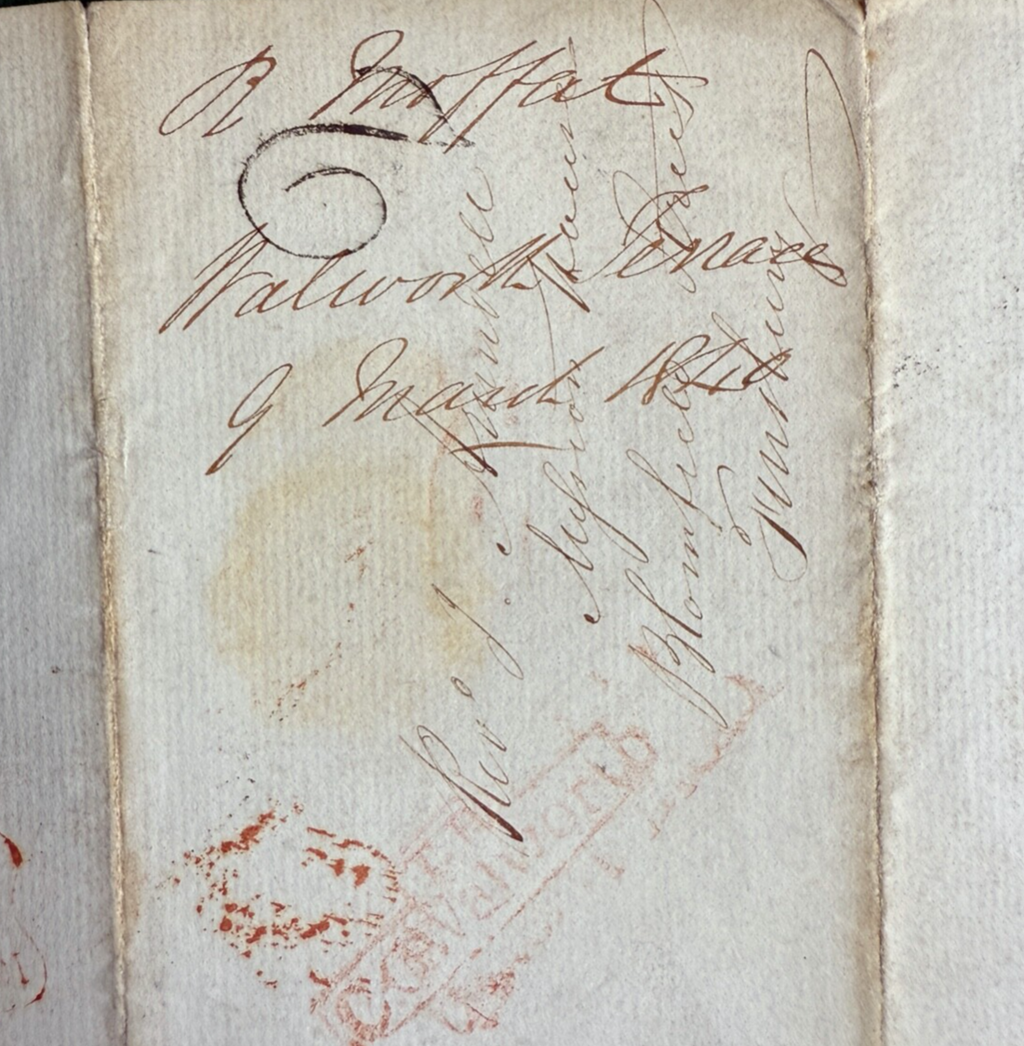 R Moffat
Walworth Terrace
9 March 1840
Revd J. Campbell
Mission House
Blomfield Street
Finsbury
Walworth